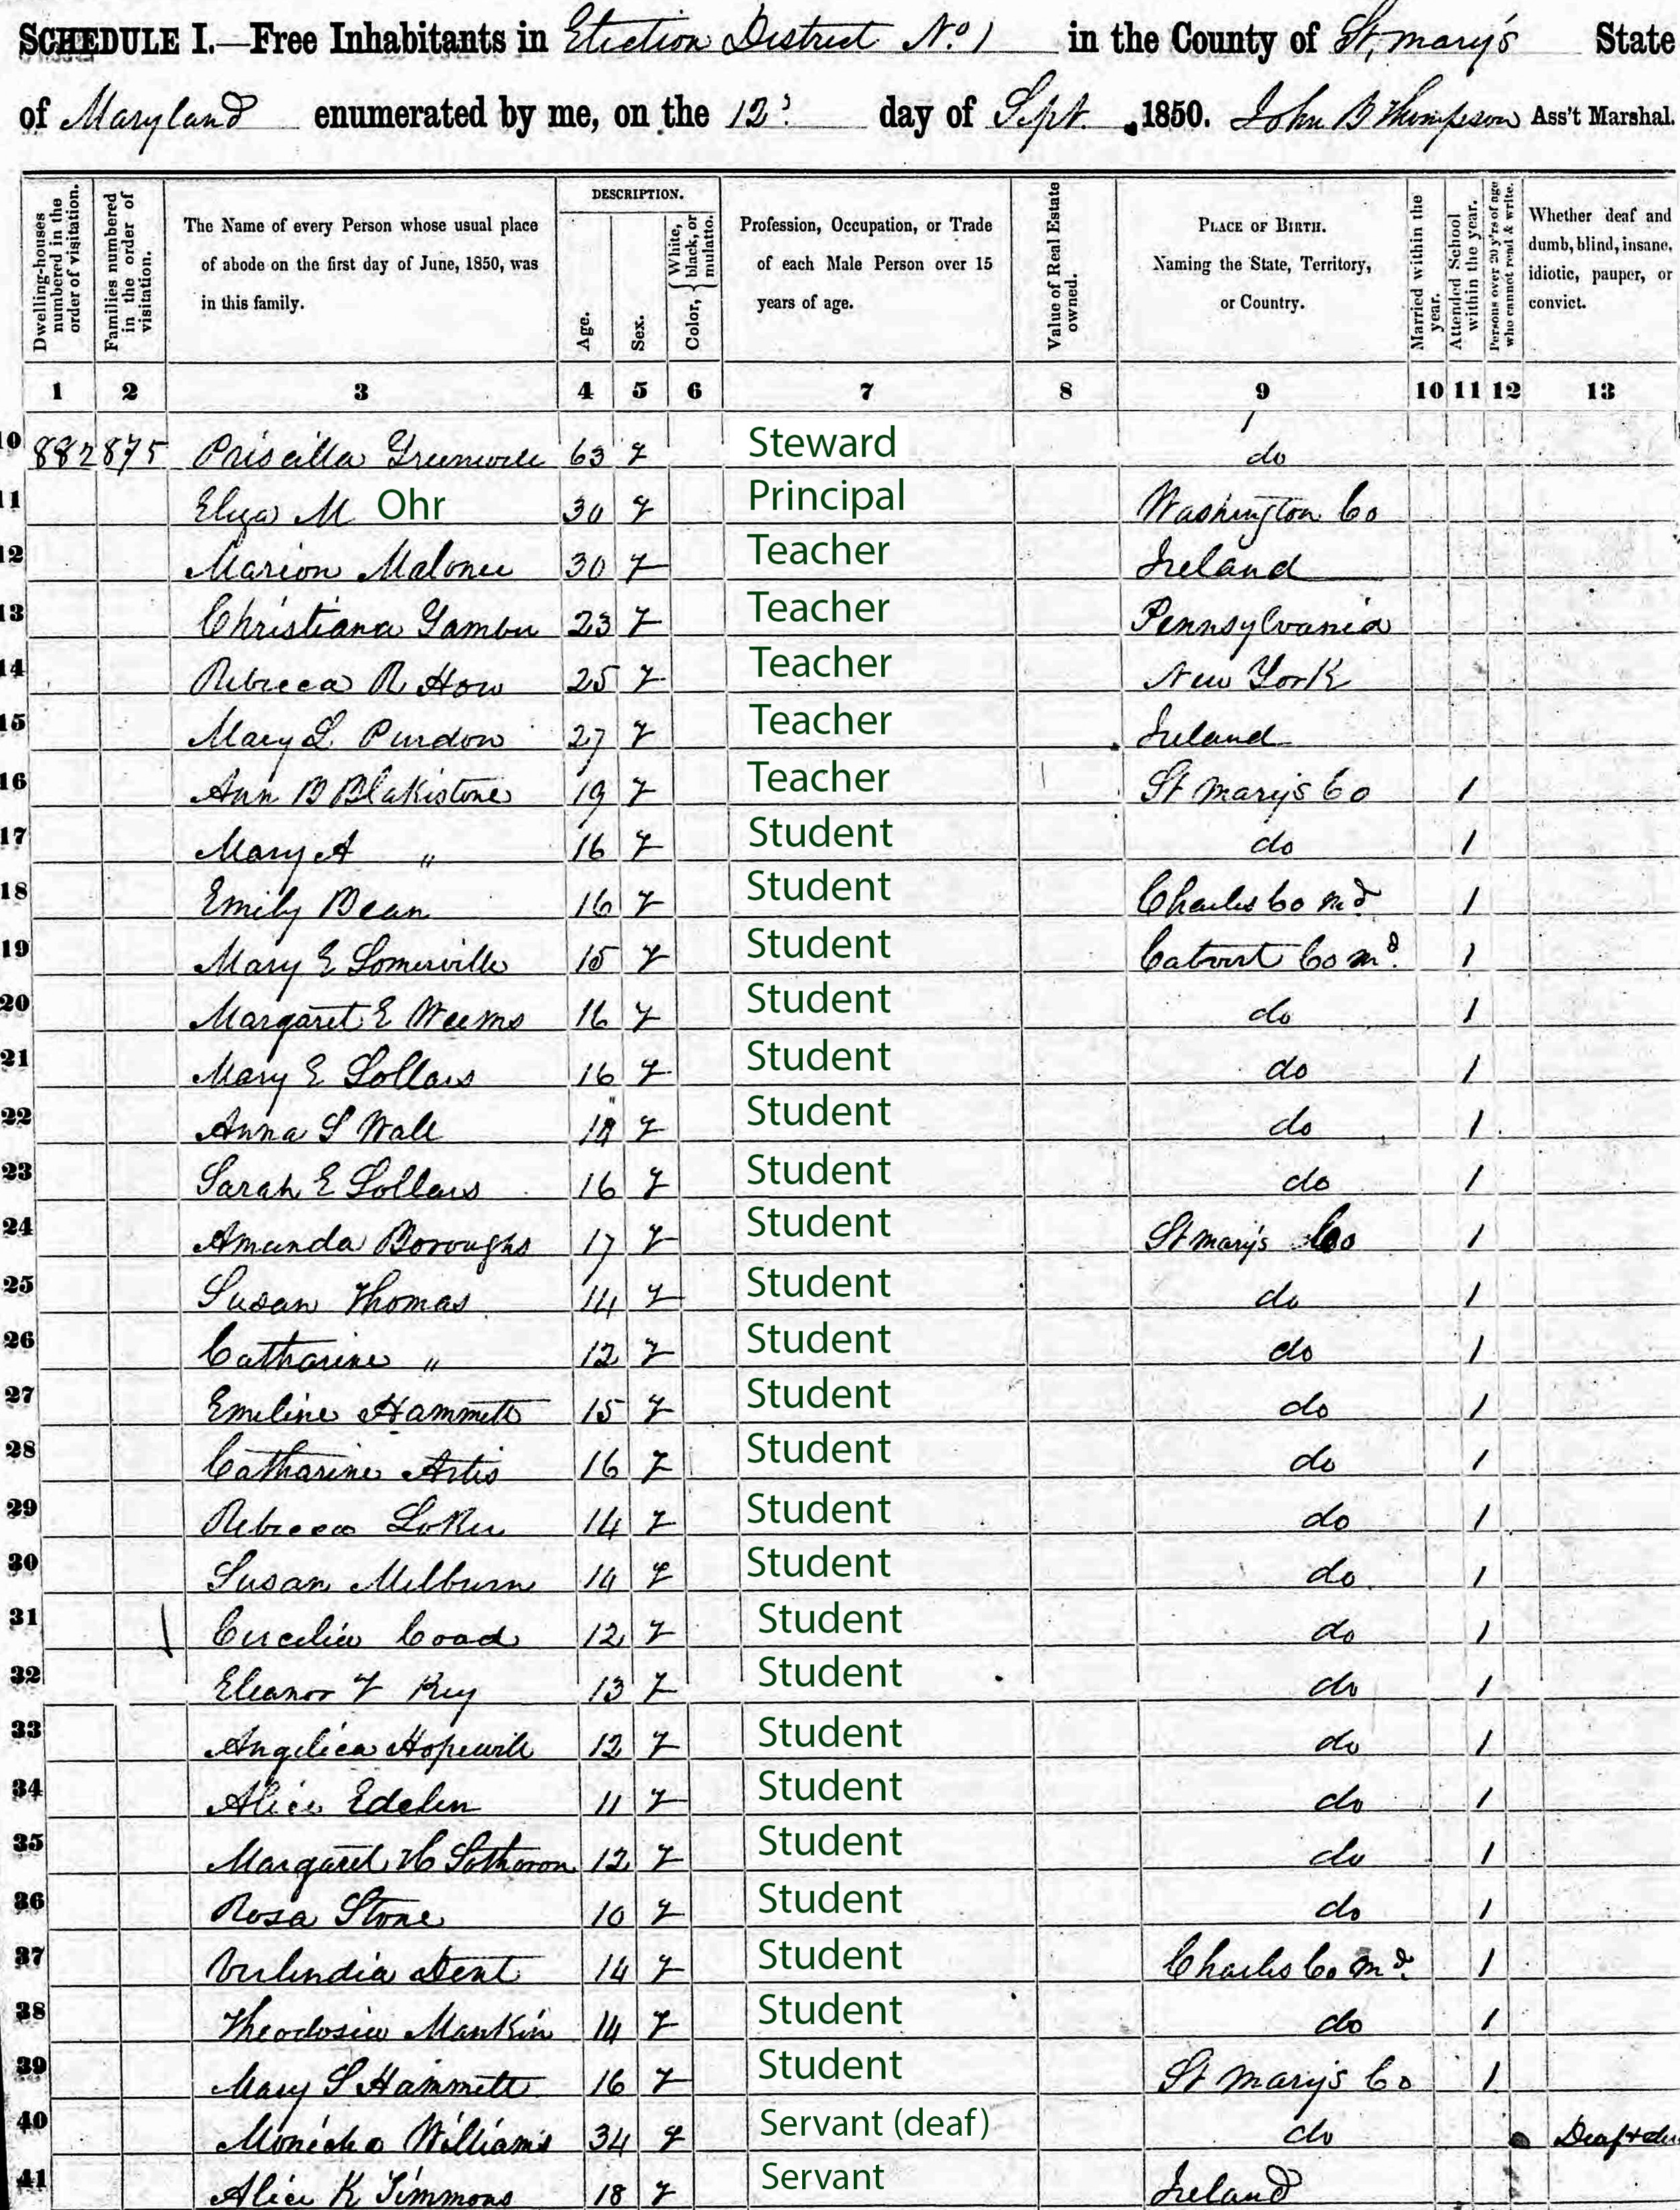 SCHEDULE I.—Free Inhabitants in Election District No. 1 in the County of St. Mary's State
of Maryland enumerated by me, on the 12' day of Sept. 1850. John B Thompson Ass't Marshal.
Dwelling-houses numbered in the order of visitation.
Families numbered in the order of visitation.
The Name of every Person whose usual place of abode on the first day of June, 1850, was in this family.
DESCRIPTION.
Age.
Sex.
Color, { White, black, or mulatto.
Profession, Occupation, or Trade of each Male Person over 15 years of age.
Value of Real Estate owned.
PLACE OF BIRTH. Naming the State, Territory, or Country.
Married within the year.
Attended School within the year.
Persons over 20 y'rs of age who cannot read & write.
Whether deaf and dumb, blind, insane, idiotic, pauper, or convict.
1 2 3 4 5 6 7 8 9 10 11 12 13
10 882 875 Priscilla Greenwell 63 F Steward do
11 Eliza M Ohr 30 F Principal Washington Co
12 Marion Malonee 30 F Teacher Ireland
13 Christiana 23 F Teacher Pennsylvania
14 Rebecca R How 25 F Teacher New York
15 Mary L Purdon 27 F Teacher Ireland
16 Ann B Blakistone 19 F Teacher St Mary's Co 1
17 Mary A " 16 F Student do 1
18 Emily Bean 16 F Student Charles Co Md 1
19 Mary E Somerville 15 F Student Calvert Co Md. 1
20 Margaret E Weems 16 F Student do 1
21 Mary E Sollars 16 F Student do 1
22 Anna S Wall F Student do 1
23 Sarah E Sollars 16 F Student do 1
24 Amanda Boroughs 17 F Student St Mary's Co 1
25 Susan Thomas 14 F Student do 1
26 Catharine " 12 F Student do 1
27 Emeline Hammett 15 F Student do 1
28 Catharine Artis 16 F Student do 1
29 Rebecca Loker 14 F Student do 1
30 Susan Milburn 14 F Student do 1
31 Cecelia Coad 12 F Student do 1
32 Eleanor F Key 13 F Student do 1
33 Angelica Hopewell 12 F Student do 1
34 Alice Edelen 11 F Student do 1
35 Margaret H Sothoron 12 F Student do 1
36 Rosa Stone 10 F Student do 1
37 Verlindia Dent 14 F Student Charles Co Md. 1
38 Theodosia Mankin 14 F Student do 1
39 Mary S Hammett 16 F Student St Mary's Co 1
40 Monicha Williams 34 F Servant (deaf) do Deaf & du
41 Alice K Timmons 18 F Servant Ireland